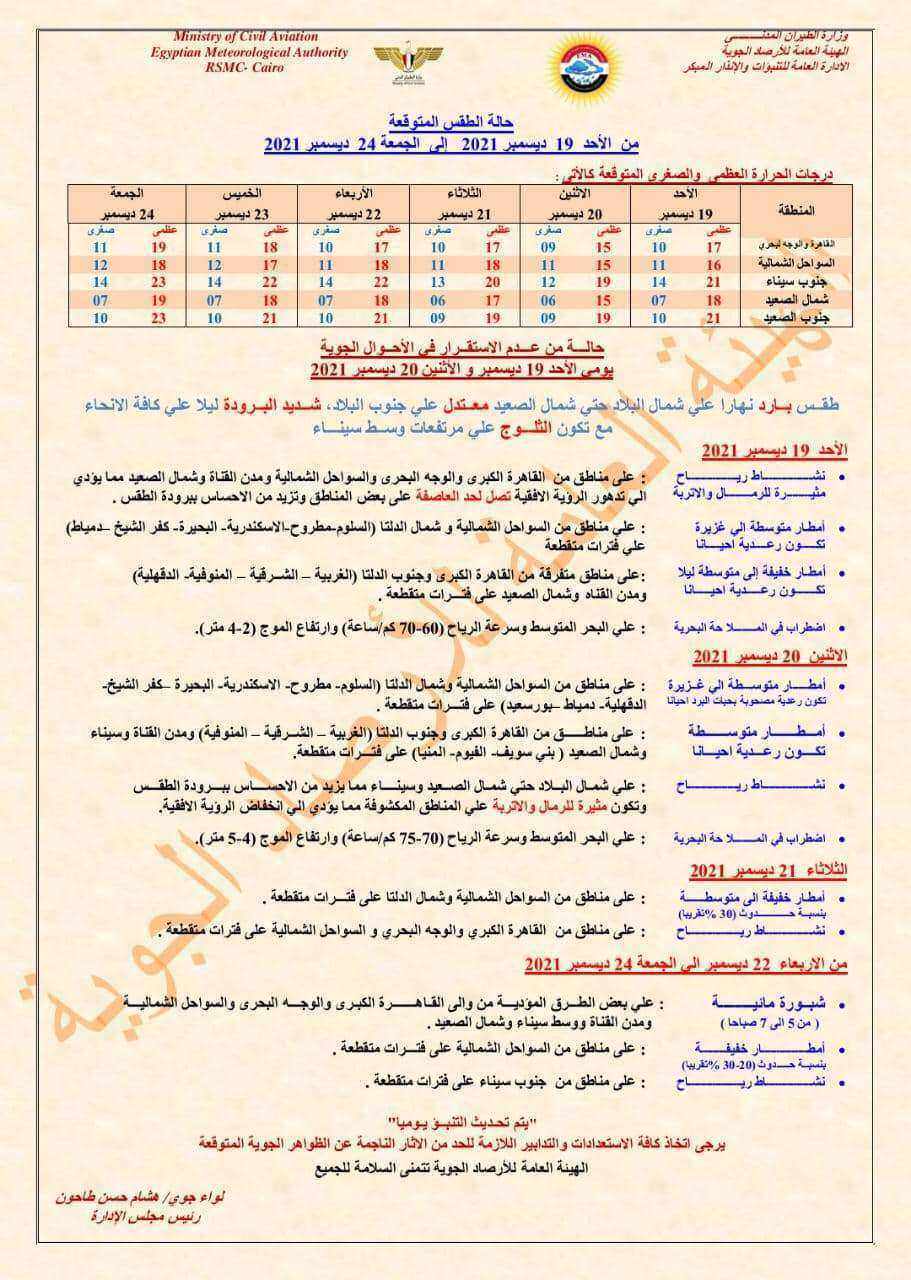 Ministry of Civil Aviation
Egyptian Meteorological Authority
RSMC- Cairo
وزارة الطيران المدنـــــي
الهيئة العامة للأرصاد الجوية
الادارة العامة للتنبؤات والإنذار المبكر
حالة الطقس المتوقعة
من الأحد 19 ديسمبر 2021 إلى الجمعة 24 ديسمبر 2021
درجات الحرارة العظمي والصغري المتوقعة كالأتي :
المنطقة الأحد الاثنين الثلاثاء الأربعاء الخميس الجمعة
19 ديسمبر 20 ديسمبر 21 ديسمبر 22 ديسمبر 23 ديسمبر 24 ديسمبر
عظمى صغرى عظمى صغرى عظمى صغرى عظمى صغرى عظمى صغرى عظمى صغرى
القاهرة والوجه لبحري 17 10 15 09 17 10 17 10 18 11 19 11
السواحل الشمالية 16 11 15 11 18 11 18 11 17 12 18 12
جنوب سيناء 21 14 19 12 20 13 22 14 22 14 23 14
شمال الصعيد 18 07 15 06 17 06 18 07 18 07 19 07
جنوب الصعيد 21 10 19 09 19 09 21 10 21 10 23 10
حالـــة من عـــدم الاستقـرار في الأحـوال الجوية
يومي الأحد 19 ديسمبر و الأثنين 20 ديسمبر 2021
طقـس بـارد نهارا علي شمال البلاد حتي شمال الصعيد معـتدل علي جنوب البلاد، شــديد البـرودة ليلا علي كافة الانحاء
مع تكون الثلـــوج علي مرتفعات وسـط سينـــاء
الأحد 19 ديسمبر 2021
• نشـــــــاط ريـــــــاح : على مناطق من القاهرة الكبرى والوجه البحرى والسواحل الشمالية ومدن القناة وشمال الصعيد مما يؤدي
مثيـــــرة للرمـــــال والاتربة الي تدهور الرؤية الافقية تصل لحد العاصفة على بعض المناطق وتزيد من الاحساس ببرودة الطقس .
• أمطـار متوسطة الي غزيرة : علي مناطق من السواحل الشمالية و شمال الدلتا (السلوم-مطروح-الاسكندرية- البحيرة- كفر الشيخ –دمياط)
تكـــون رعـــدية احيـــانا علي فترات متقطعة
• أمطـار خفيفة إلى متوسطة ليلا :على مناطق متفرقة من القاهرة الكبرى وجنوب الدلتا (الغربية – الشـرقية – المنوفية- الدقهلية)
تكـــــون رعـــدية احيـــانا ومدن القناه وشمال الصعيد على فتـــرات متقطعة .
• اضطراب في المــــلا حة البحرية : علي البحر المتوسط وسرعة الرياح (60-70 كم/ساعة) وارتفاع الموج (2-4 متر).
الاثنين 20 ديسمبر 2021
• أمطــــار متوســطة الي غـزيرة : على مناطق من السواحل الشمالية وشمال الدلتا (السلوم- مطروح- الاسكندرية- البحيرة –كفر الشيخ-
تكون رعدية مصحوبة بحبات البرد احيانا الدقهلية- دمياط –بورسعيد) على فتـــرات متقطعة .
• أمــطـــــــار متوســـــطة : على مناطــــق من القاهرة الكبرى وجنوب الدلتا (الغربية – الشـرقية – المنوفية) ومدن القناة وسيناء
تكـــون رعـــدية احيـــانا وشمال الصعيد ( بني سويف- الفيوم- المنيا) على فتـــرات متقطعة.
• نشـــــــاط ريـــــــاح : علي شمال البــلاد حتي شمـال الصــعيد وسينـــاء مما يزيد من الاحســـاس ببـــرودة الطقـــس
وتكون مثيرة للرمال والاتربة علي المناطق المكشوفة مما يؤدي الي انخفاض الروية الافقية.
• اضطراب في المــــلا حة البحرية : علي البحر المتوسط وسرعة الرياح (70-75 كم/ساعة) وارتفاع الموج (4-5 متر).
الثلاثاء 21 ديسمبر 2021
• أمطـار خفيفة الى متوسطـــــة : على مناطق من السواحل الشمالية وشمال الدلتا على فتـــرات متقطعة .
بنسبـة حـــــدوث (30 %تقريبا)
• نشـــــــاط ريـــــــاح : على مناطق من القاهرة الكبري والوجه البحري و السواحل الشمالية على فترات متقطعة .
من الاربعاء 22 ديسمبر الي الجمعة 24 ديسمبر 2021
• شبـورة مائيـــــــة : علي بعض الطـرق المؤديـــة من والى القـاهـــــرة الكبـرى والوجــه البحرى والسواحل الشماليـــة
( من 5 الى 7 صباحا ) ومدن القناة ووسط سيناء وشمال الصعيد .
• أمطـــــــار خفيفـــــة : على مناطق من السواحل الشمالية على فتـــرات متقطعة .
بنسبـة حـــدوث (20-30 %تقريبا)
• نشـــــــاط ريـــــــاح : على مناطق من جنوب سيناء على فترات متقطعة .
"يتم تحديث التنبـؤ يوميا"
يرجى اتخاذ كافة الاستعدادات والتدابير اللازمة للحد من الاثار الناجمة عن الظواهر الجوية المتوقعة
الهيئة العامة للأرصاد الجوية تتمنى السلامة للجميع
لواء جوي/ هشام حسن طاحون
رئيس مجلس الإدارة
الهيئة العامة للأرصاد الجوية